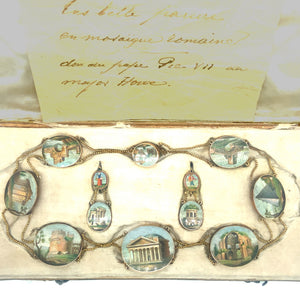 Très belle parure
en mosaïque romaine
don du pape Pie VII au
major Howe.